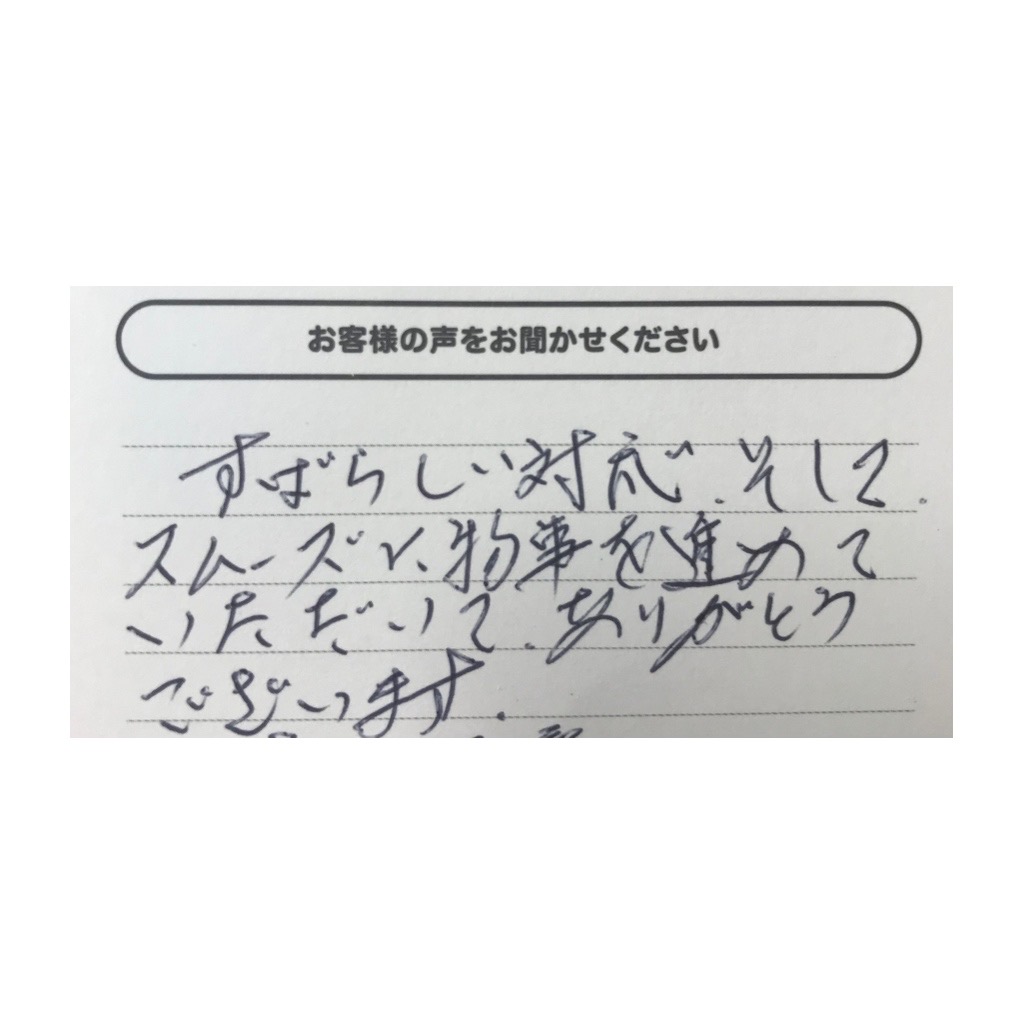 お客様の声をお聞かせください
すばらしい対応、そして、
スムーズに物事を進めて
いただいて、ありがとう
ございます。